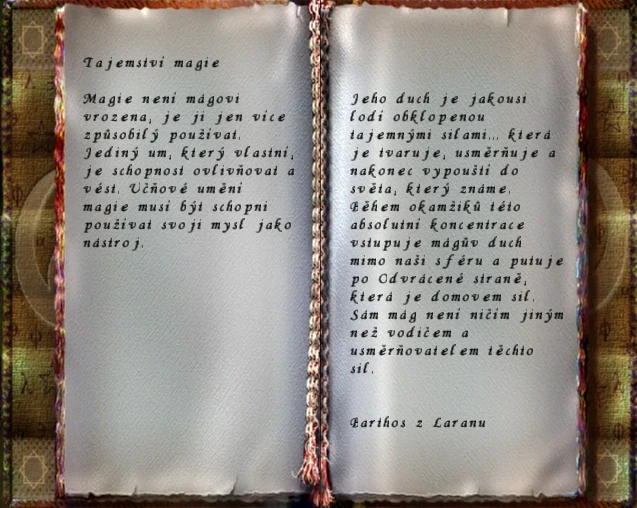 Tajemství magie
Magie není mágovi
vrozena, je ji jen více
způsobilý používat.
Jediný um, který vlastní,
je schopnost ovlivňovat a
vést. Učňové umění
magie musí být schopni
používat svoji mysl jako
nástroj.
Jeho duch je jakousi
lodí obklopenou
tajemnými silami... která
je tvaruje, usměrňuje a
nakonec vypouští do
světa, který známe.
Během okamžiků této
absolutní koncentrace
vstupuje mágův duch
mimo naši sféru a putuje
po Odvrácené straně,
která je domovem sil.
Sám mág není ničím jiným
než vodičem a
usměrňovatelem těchto
sil.
Barthos z Laranu